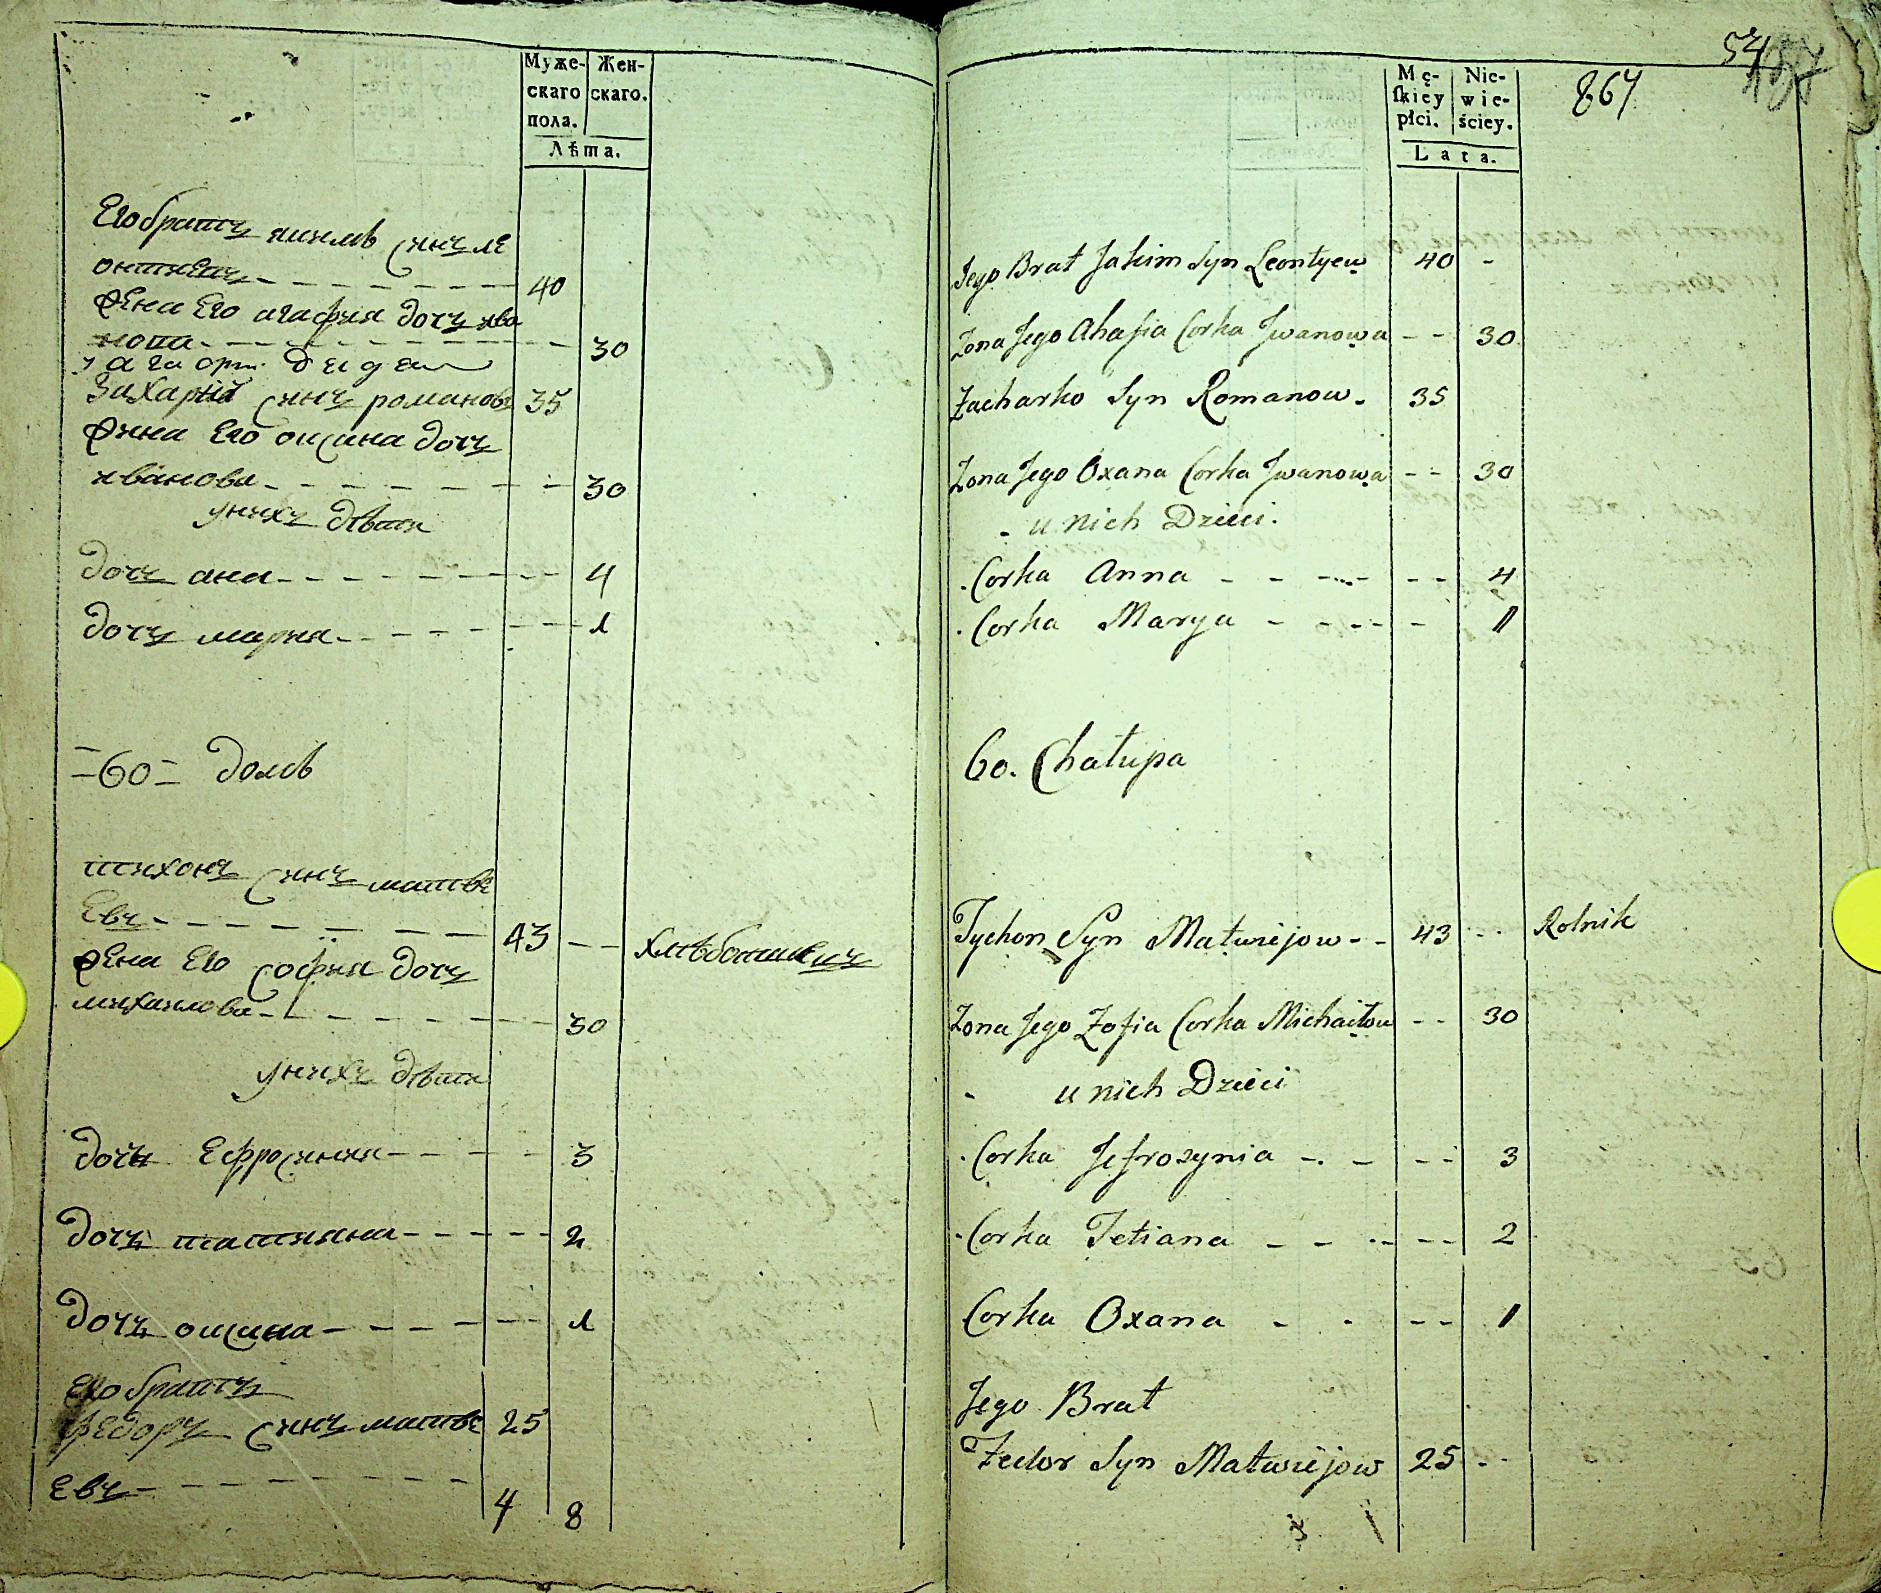 Муже-
скаго
пола.
Жен-
скаго.
Лѣта.
Его братъ якимъ сынъ ле
онтиевъ - - - - - - - 40
жена Его агафия дочъ ива
нова - - - - - - - 30
Захарий сынъ романовъ 35
жина Его оксана дочъ
иванова - - - - - - - 30
у нихъ дѣти
дочъ ана - - - - - - - - 4
дочъ мария - - - - - - - 1
=60= домъ
тихонъ сынъ матве
Евъ - - - - - - - 43 - - хлѣбопашецъ
жена Его софия дочъ
михаилова - - - - - - 30
у нихъ дѣти
дочъ Ефросиния - - - - - 3
дочъ татияна - - - - - 2
дочъ оксана - - - - - - 1
Его братъ
федоръ сынъ матве 25
Евъ - - - - - - -
4 8
54
864
Mę-
ſkiey
płci.
Nie-
wie-
ściey.
Lata.
Jego Brat Jakim Syn Leontyew 40 -
Żona Jego Ahafia Corka Jwanowa - - 30
Zacharko Syn Romanow - 35
Żona Jego Oxana Corka Jwanowa - - 30
u nich Dzieci.
Corka Anna - - - - - - 4
Corka Marya - - - - - 1
60. Chałupa
Tychon Syn Matwiejow - - 43 - - Rolnik
Żona Jego Zofia Corka Michaiłow - - 30
u nich Dzieci
Corka Jefrozynia - - - - 3
Corka Tetiana - - - - - 2
Corka Oxana - - - - 1
Jego Brat
Fedor Syn Matwiejow 25 - -